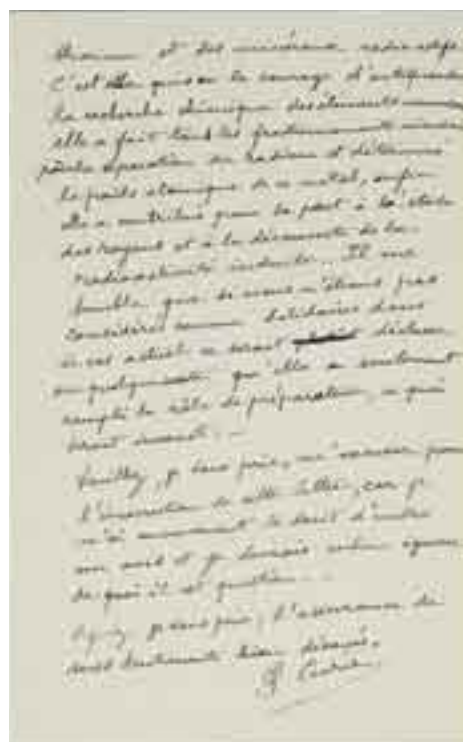 uranium et des minéraux radioactifs.
C'est elle qui a eu le courage d'entreprendre
la recherche chimique des éléments
elle a fait tous les fractionnements
pour la séparation du radium et déterminé
le poids atomique de ce métal, enfin
elle a contribué pour sa part à l'étude
des rayons et à la découverte de la
radioactivité induite... Il me
semble que si nous n'étions pas
considérés comme solidaires dans
le cas actuel ce serait déclarer
en quelque sorte qu'elle a seulement
rempli le rôle de préparateur, ce qui
serait inexact. —
Veuillez, je vous prie, m'excuser pour
l'incorrection de cette lettre, car je
n'ai aucunement le droit d'émettre
un avis et je devrais même ignorer
de quoi il est question...
Agréez, je vous prie, l'assurance de
mes sentiments bien dévoués.
P. Curie